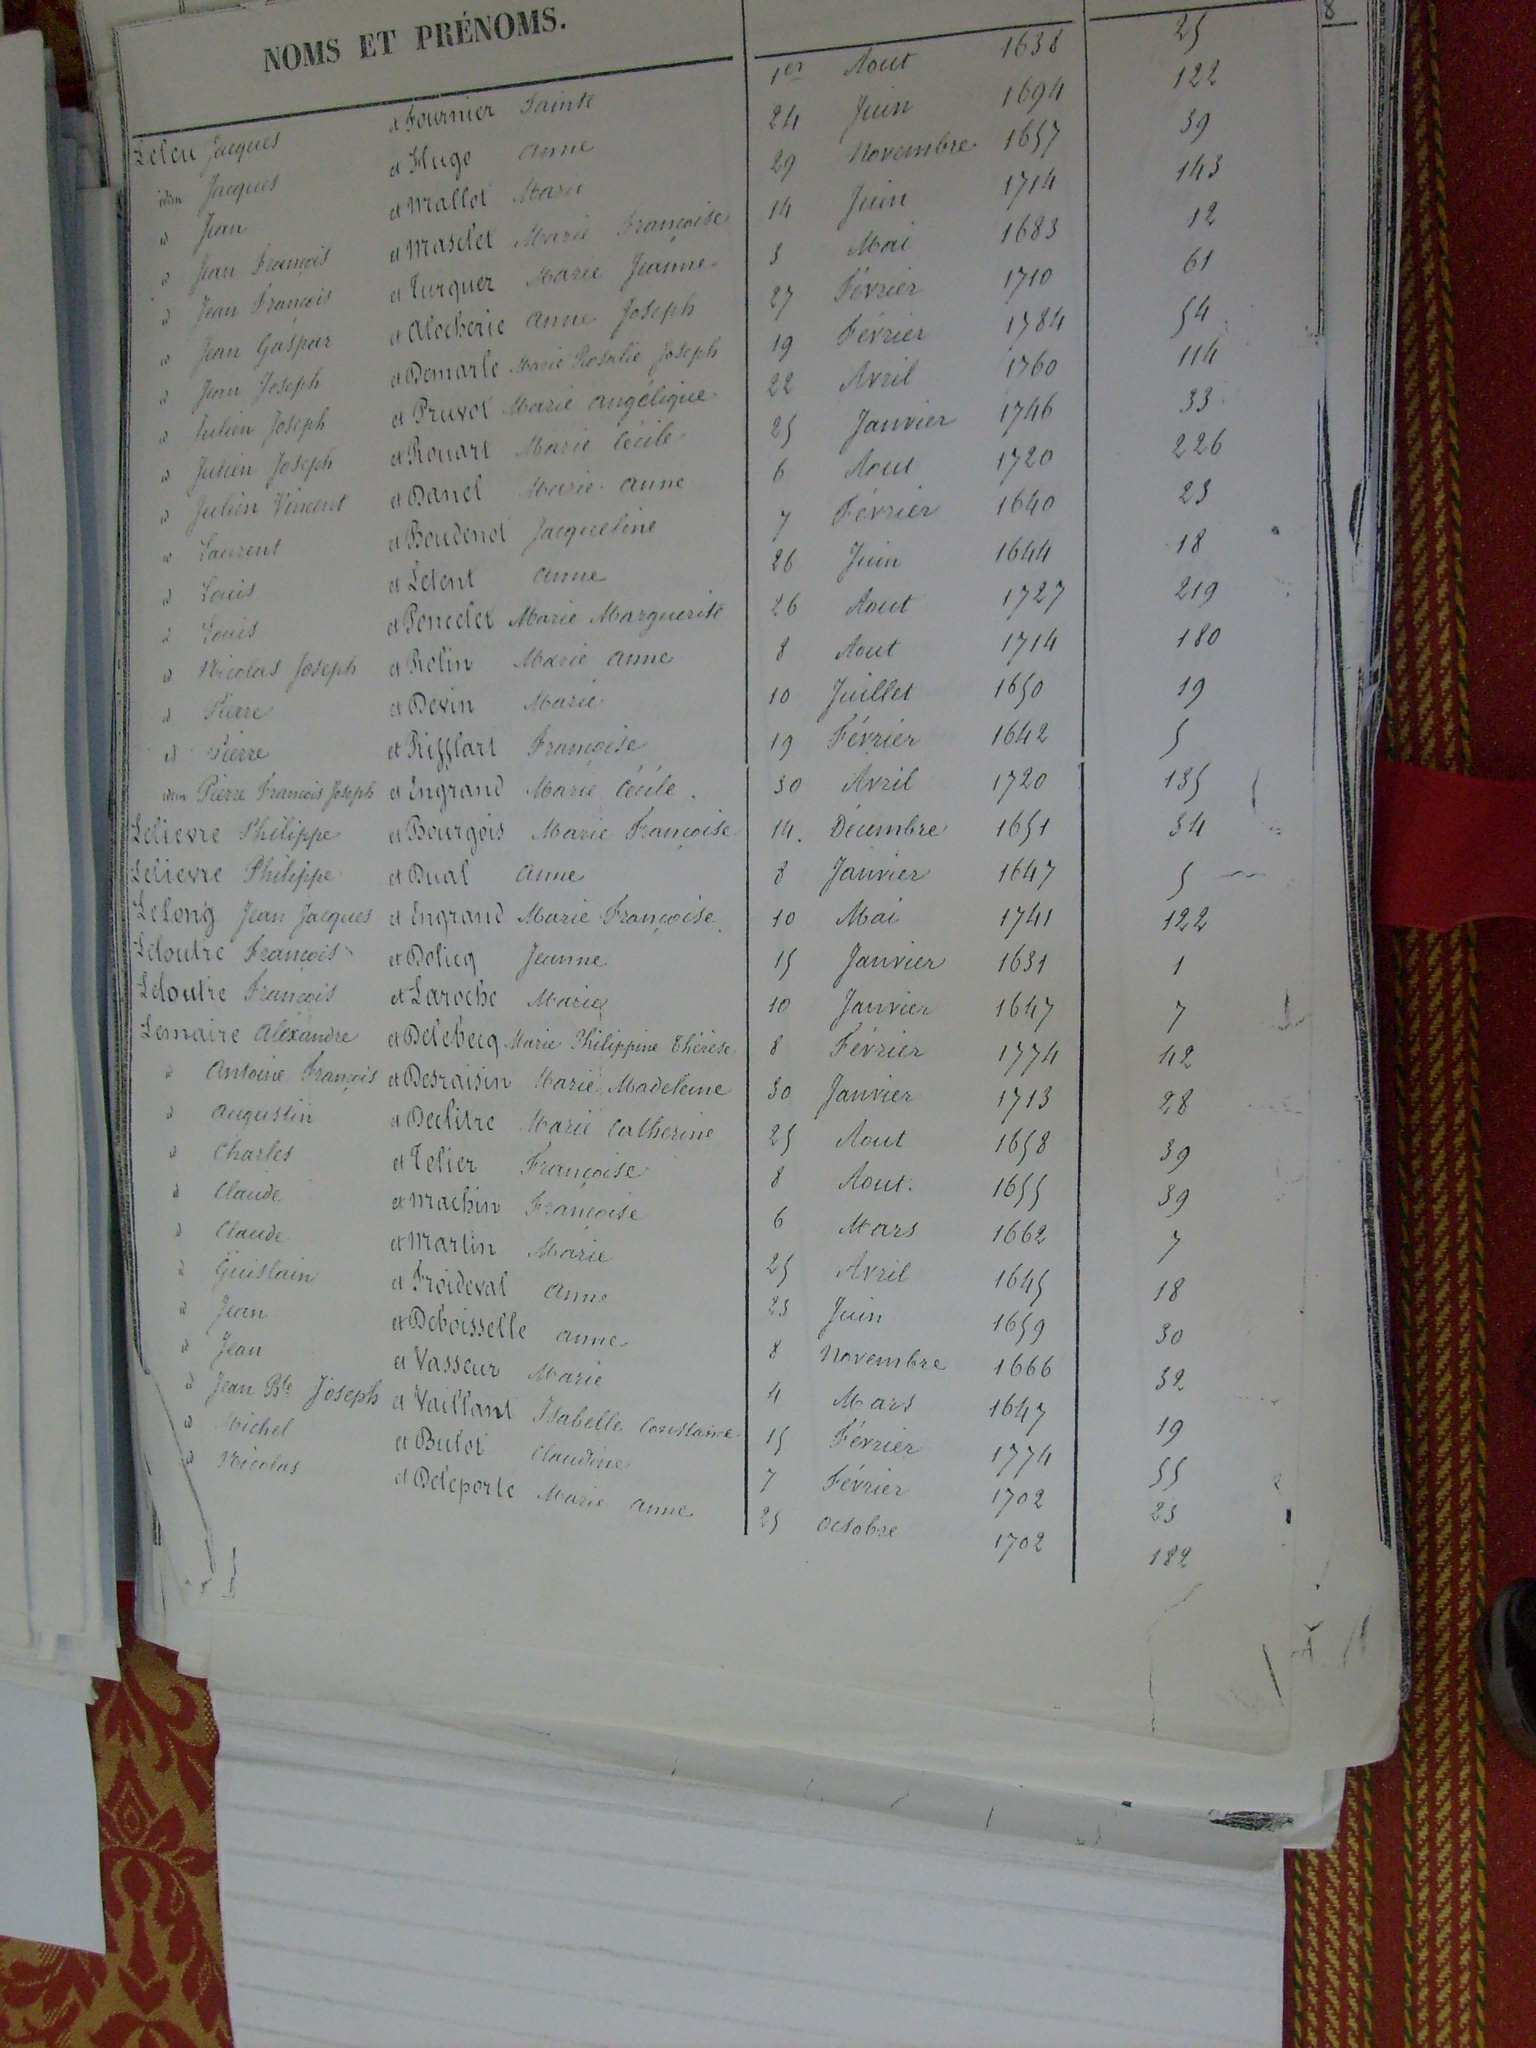 NOMS ET PRÉNOMS.
8
Leleu Jacques et Fournier Sainte 1er Aout 1638 25
idem Jacques et Hugo Anne 24 Juin 1694 122
id Jean et Mallot Marie 29 Novembre 1657 39
id Jean François et Masclet Marie Françoise 14 Juin 1714 143
id Jean François et Turquer Marie Jeanne 3 Mai 1683 12
id Jean Gaspar et Alocherie Anne Joseph 27 Février 1710 61
id Jean Joseph et Demarle Marie Rosalie Joseph 19 Février 1784 54
id Julien Joseph et Pruvot Marie Angélique 22 Avril 1760 114
id Julien Joseph et Rouart Marie Cécile 25 Janvier 1746 33
id Julien Vincent et Danel Marie Anne 6 Aout 1720 226
id Laurent et Boudenot Jacqueline 7 Février 1640 23
id Louis et Letent Anne 26 Juin 1644 18
id Louis et Poncelet Marie Marguerite 26 Aout 1727 219
id Nicolas Joseph et Prelin Marie Anne 8 Aout 1714 180
id Pierre et Devin Marie 10 Juillet 1650 19
id Pierre et Rifflart Françoise 19 Février 1642 5
idem Pierre François Joseph et Engrand Marie Cécile. 30 Avril 1720 135
Lelievre Philippe et Bourgois Marie Françoise 14. Décembre 1651 34
Lelievre Philippe et Dual Anne 8 Janvier 1647 5
Lelong Jean Jacques et Engrand Marie Françoise. 10 Mai 1741 122
Leloutre François et Dolicq Jeanne 15 Janvier 1631 1
Leloutre François et Laroche Marie 10 Janvier 1647 7
Lemaire Aléxandre et Delebecq Marie Philippine Thérèse 8 Février 1774 42
id Antoine François et Desraisin Marie Madeleine 30 Janvier 1713 28
id Augustin et Declitre Marie Catherine 25 Aout 1658 39
id Charles et Telier Françoise 8 Aout. 1655 39
id Claude et Machin Françoise 6 Mars 1662 7
id Claude et Martin Marie 25 Avril 1645 18
id Guislain et Froideval Anne 23 Juin 1659 30
id Jean et Deboisselle Anne 8 Novembre 1666 32
id Jean et Vasseur Marie 4 Mars 1647 19
id Jean Bte Joseph et Vaillant Isabelle Constance 15 Février 1774 55
id Michel et Bulot Claudine 7 Février 1702 23
id Nicolas et Deleporte Marie Anne 25 Octobre 1702 182